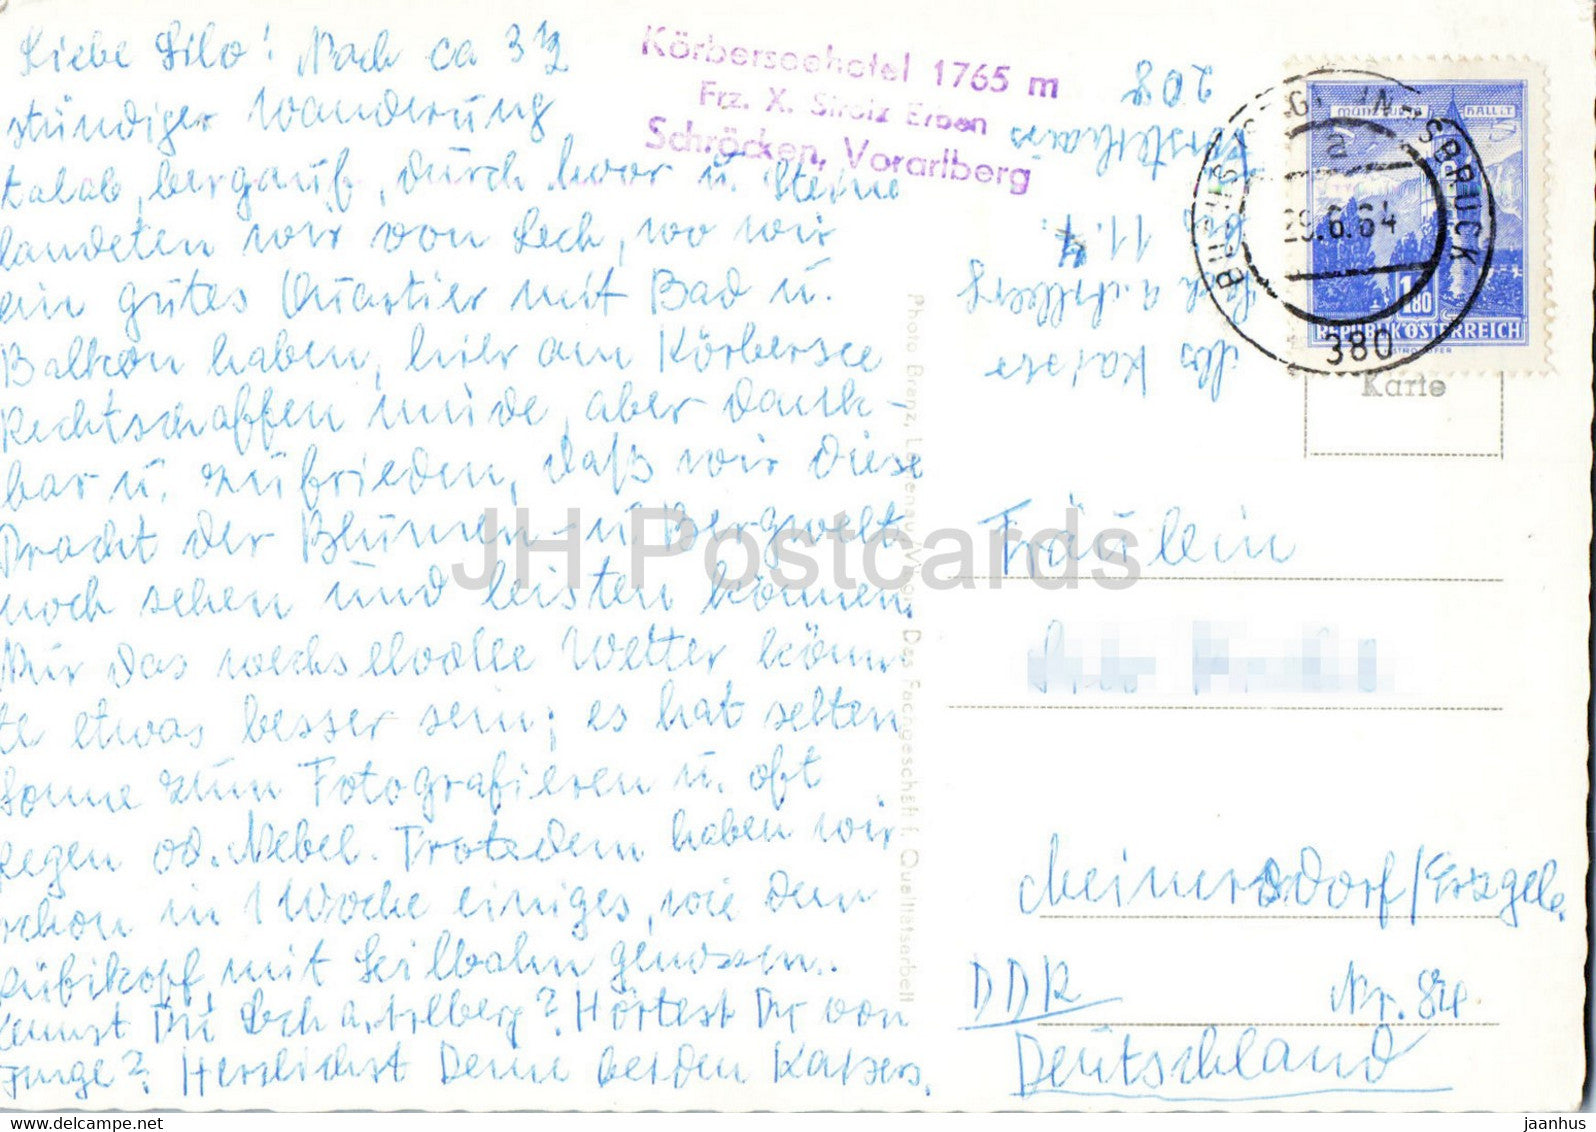 Liebe Silo! Nach ca 3 1/2
stündiger Wanderung
talab, bergauf, durch Moor u. Steine
landeten wir von Lech, wo wir
ein gutes Quartier mit Bad u.
Balkon haben, hier am Körbersee
Rechtschaffen müde, aber dank-
bar u. zufrieden, daß wir diese
Pracht der Blumen- u. Bergwelt
noch sehen und leisten können.
Nur das wechselvolle Wetter könn
te etwas besser sein; es hat selten
Sonne zum Fotografieren u. oft
Regen od. Nebel. Trotzdem haben wir
schon in 1 Woche einiges, wie den
Rüfikopf, mit Seilbahn genossen.
Kennst Du Lech a. Arlberg? Hörtest Du von
Inge? Herzlichst Deine beiden Kaisers.
Körberseehotel 1765 m
Frz. X. Erben
Schröcken, Vorarlberg
208
bis 11. 7.
Lech a. Arlberg
Kaiser
INNSBRUCK
a
29.6.64
380
HALL i.T
1.80
REPUBLIK ÖSTERREICH
Karte
Photo Das Fachgeschäft f. Qualitätsarbeit
Fräulein
Meinersdorf/Erzgeb.
DDR Nr. 84
Deutschland
JH Postcards
www.delcampe.net
jaanhus